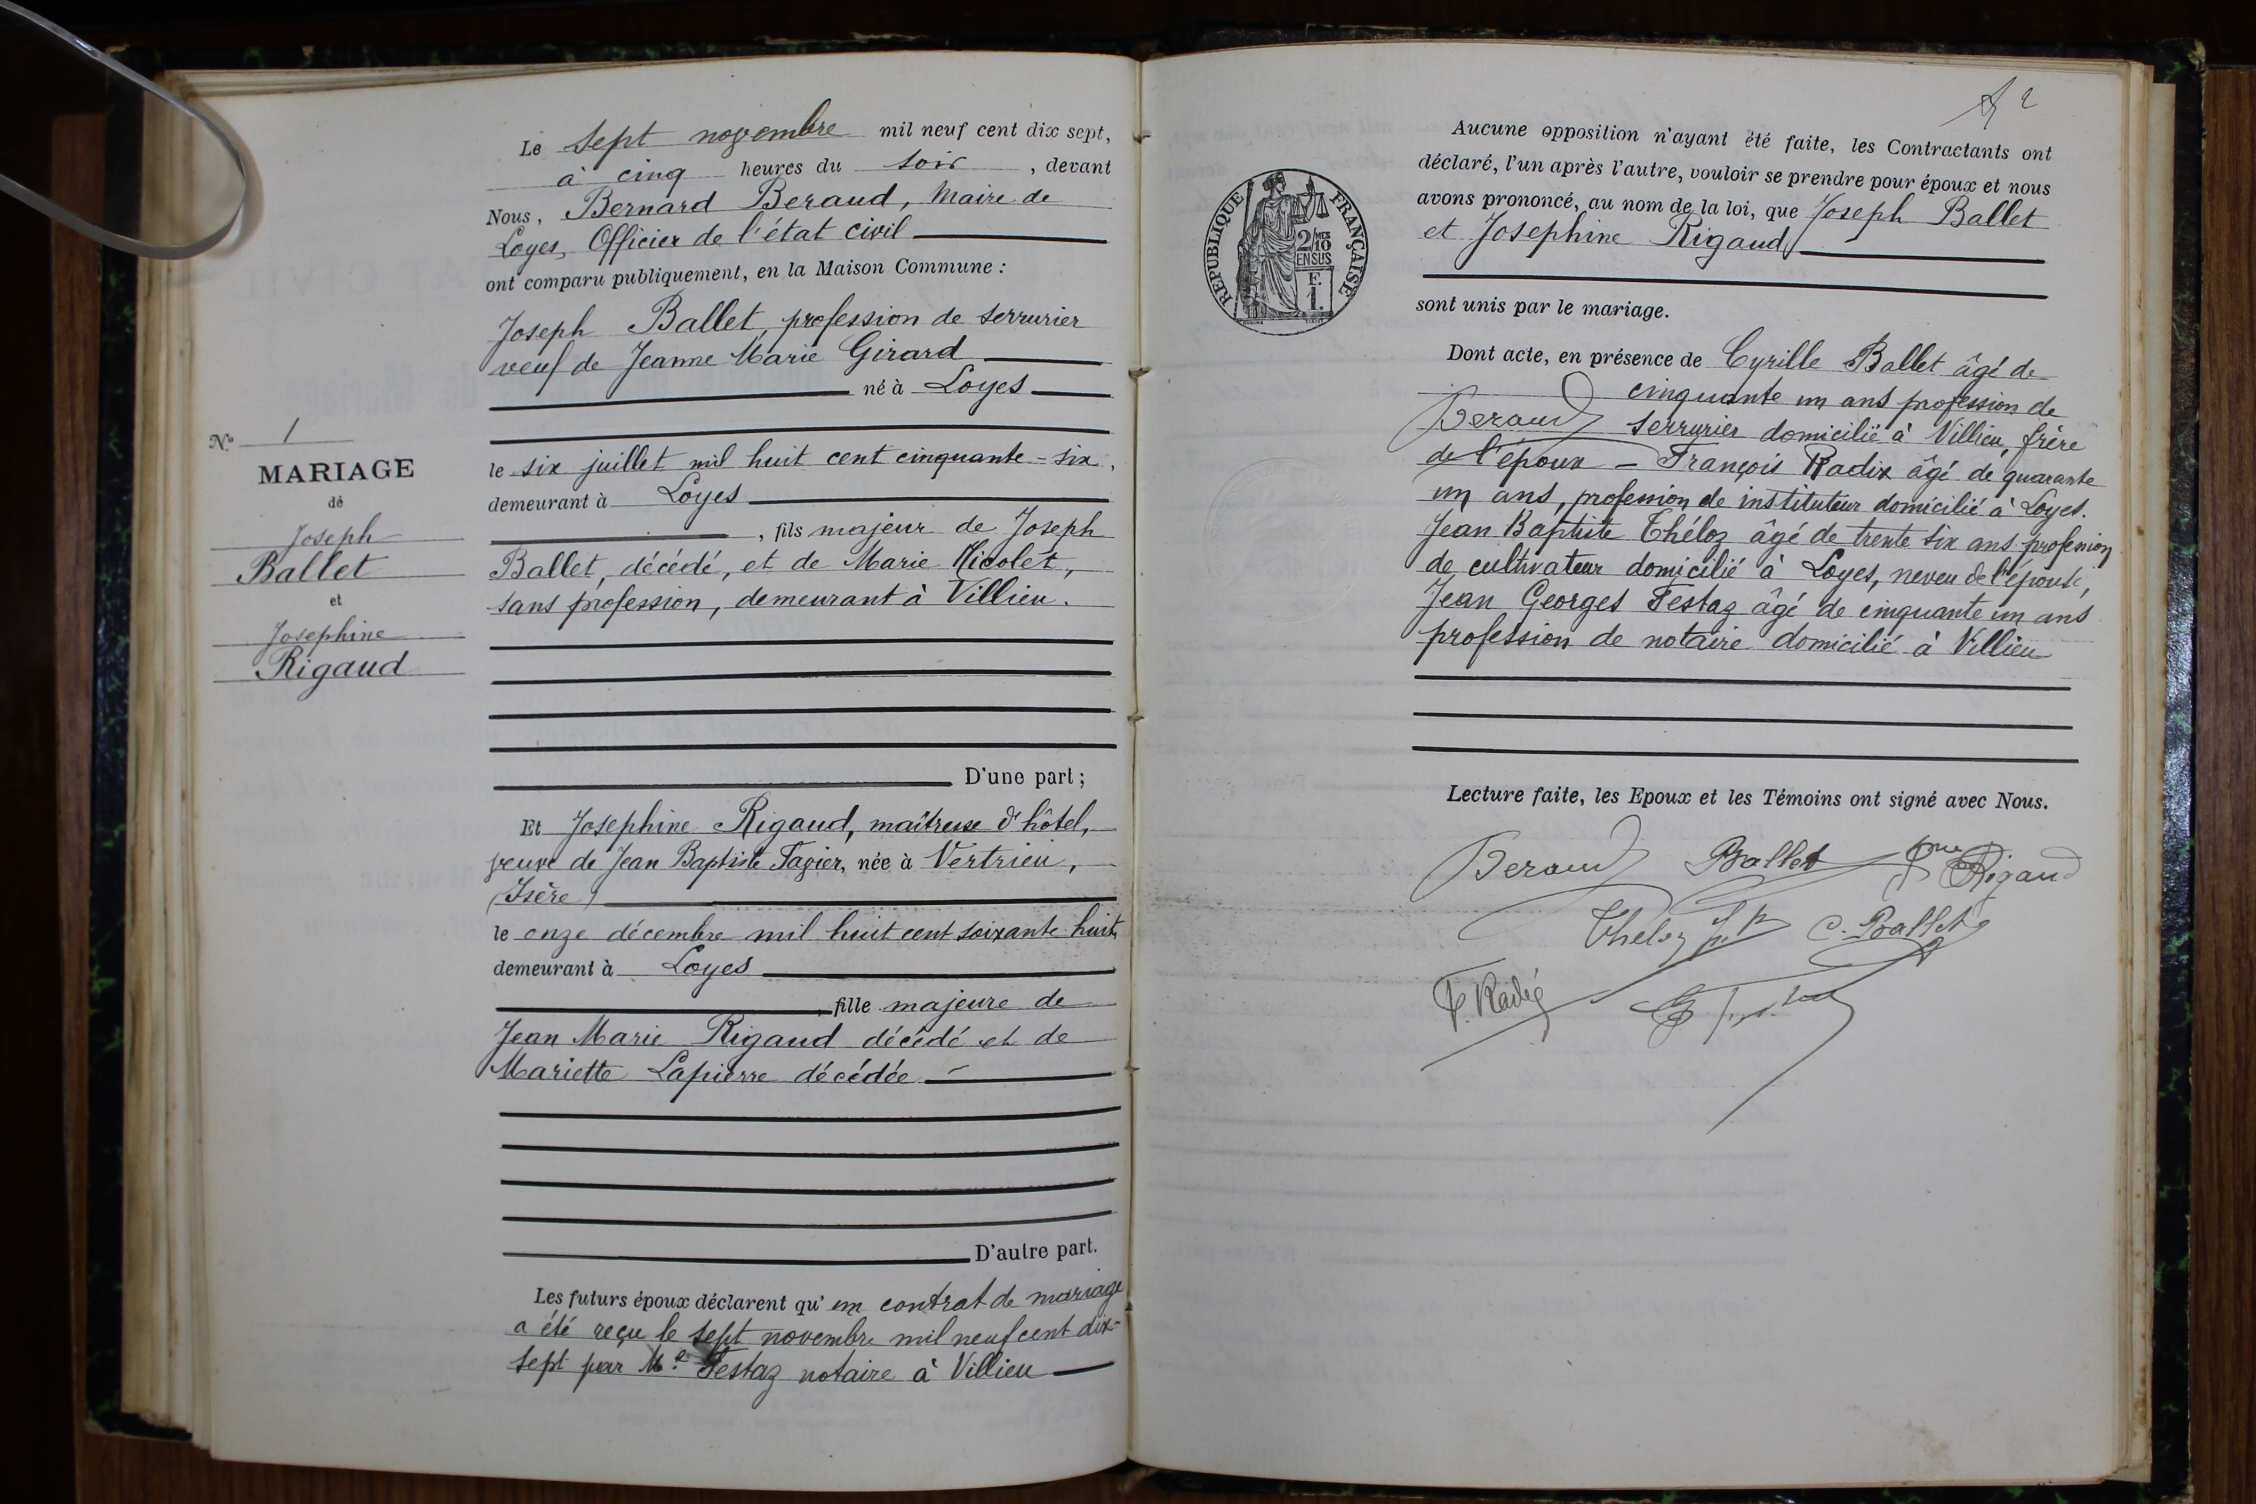 Le sept novembre mil neuf cent dix sept,
à cinq heures du soir, devant
Nous, Bernard Beraud, Maire de
Loyes, Officier de l'état civil
ont comparu publiquement, en la Maison Commune :
Joseph Ballet, profession de serrurier
veuf de Jeanne Marie Girard
né à Loyes
le six juillet mil huit cent cinquante-six,
demeurant à Loyes
, fils majeur de Joseph
Ballet, décédé, et de Marie Nicolet,
sans profession, demeurant à Villieu.
D'une part ;
Et Josephine Rigaud, maîtresse d'hôtel,
veuve de Jean Baptiste Tagier, née à Vertrieu,
(Isère)
le onze décembre mil huit cent soixante huit,
demeurant à Loyes
, fille majeure de
Jean Marie Rigaud décédé et de
Mariette Lapierre décédée
D'autre part.
Les futurs époux déclarent qu'un contrat de mariage
a été reçu le sept novembre mil neuf cent dix-
sept par Me. Festaz notaire à Villieu
N° 1
MARIAGE
de
Joseph
Ballet
et
Josephine
Rigaud
2
Aucune opposition n'ayant été faite, les Contractants ont
déclaré, l'un après l'autre, vouloir se prendre pour époux et nous
avons prononcé, au nom de la loi, que Joseph Ballet
et Josephine Rigaud
sont unis par le mariage.
RÉPUBLIQUE FRANÇAISE
2/10 MES
EN SUS
F.
1.
Dont acte, en présence de Cyrille Ballet âgé de
cinquante un ans profession de
Beraud serrurier domicilié à Villieu, frère
de l'époux – François Radix âgé de quarante
un ans, profession de instituteur domicilié à Loyes.
Jean Baptiste Théloz âgé de trente six ans profession
de cultivateur domicilié à Loyes, neveu de l'épouse,
Jean Georges Festaz âgé de cinquante un ans
profession de notaire domicilié à Villieu
Lecture faite, les Epoux et les Témoins ont signé avec Nous.
Beraud Ballet Jne Rigaud
Theloz C. Ballet
F. Radix